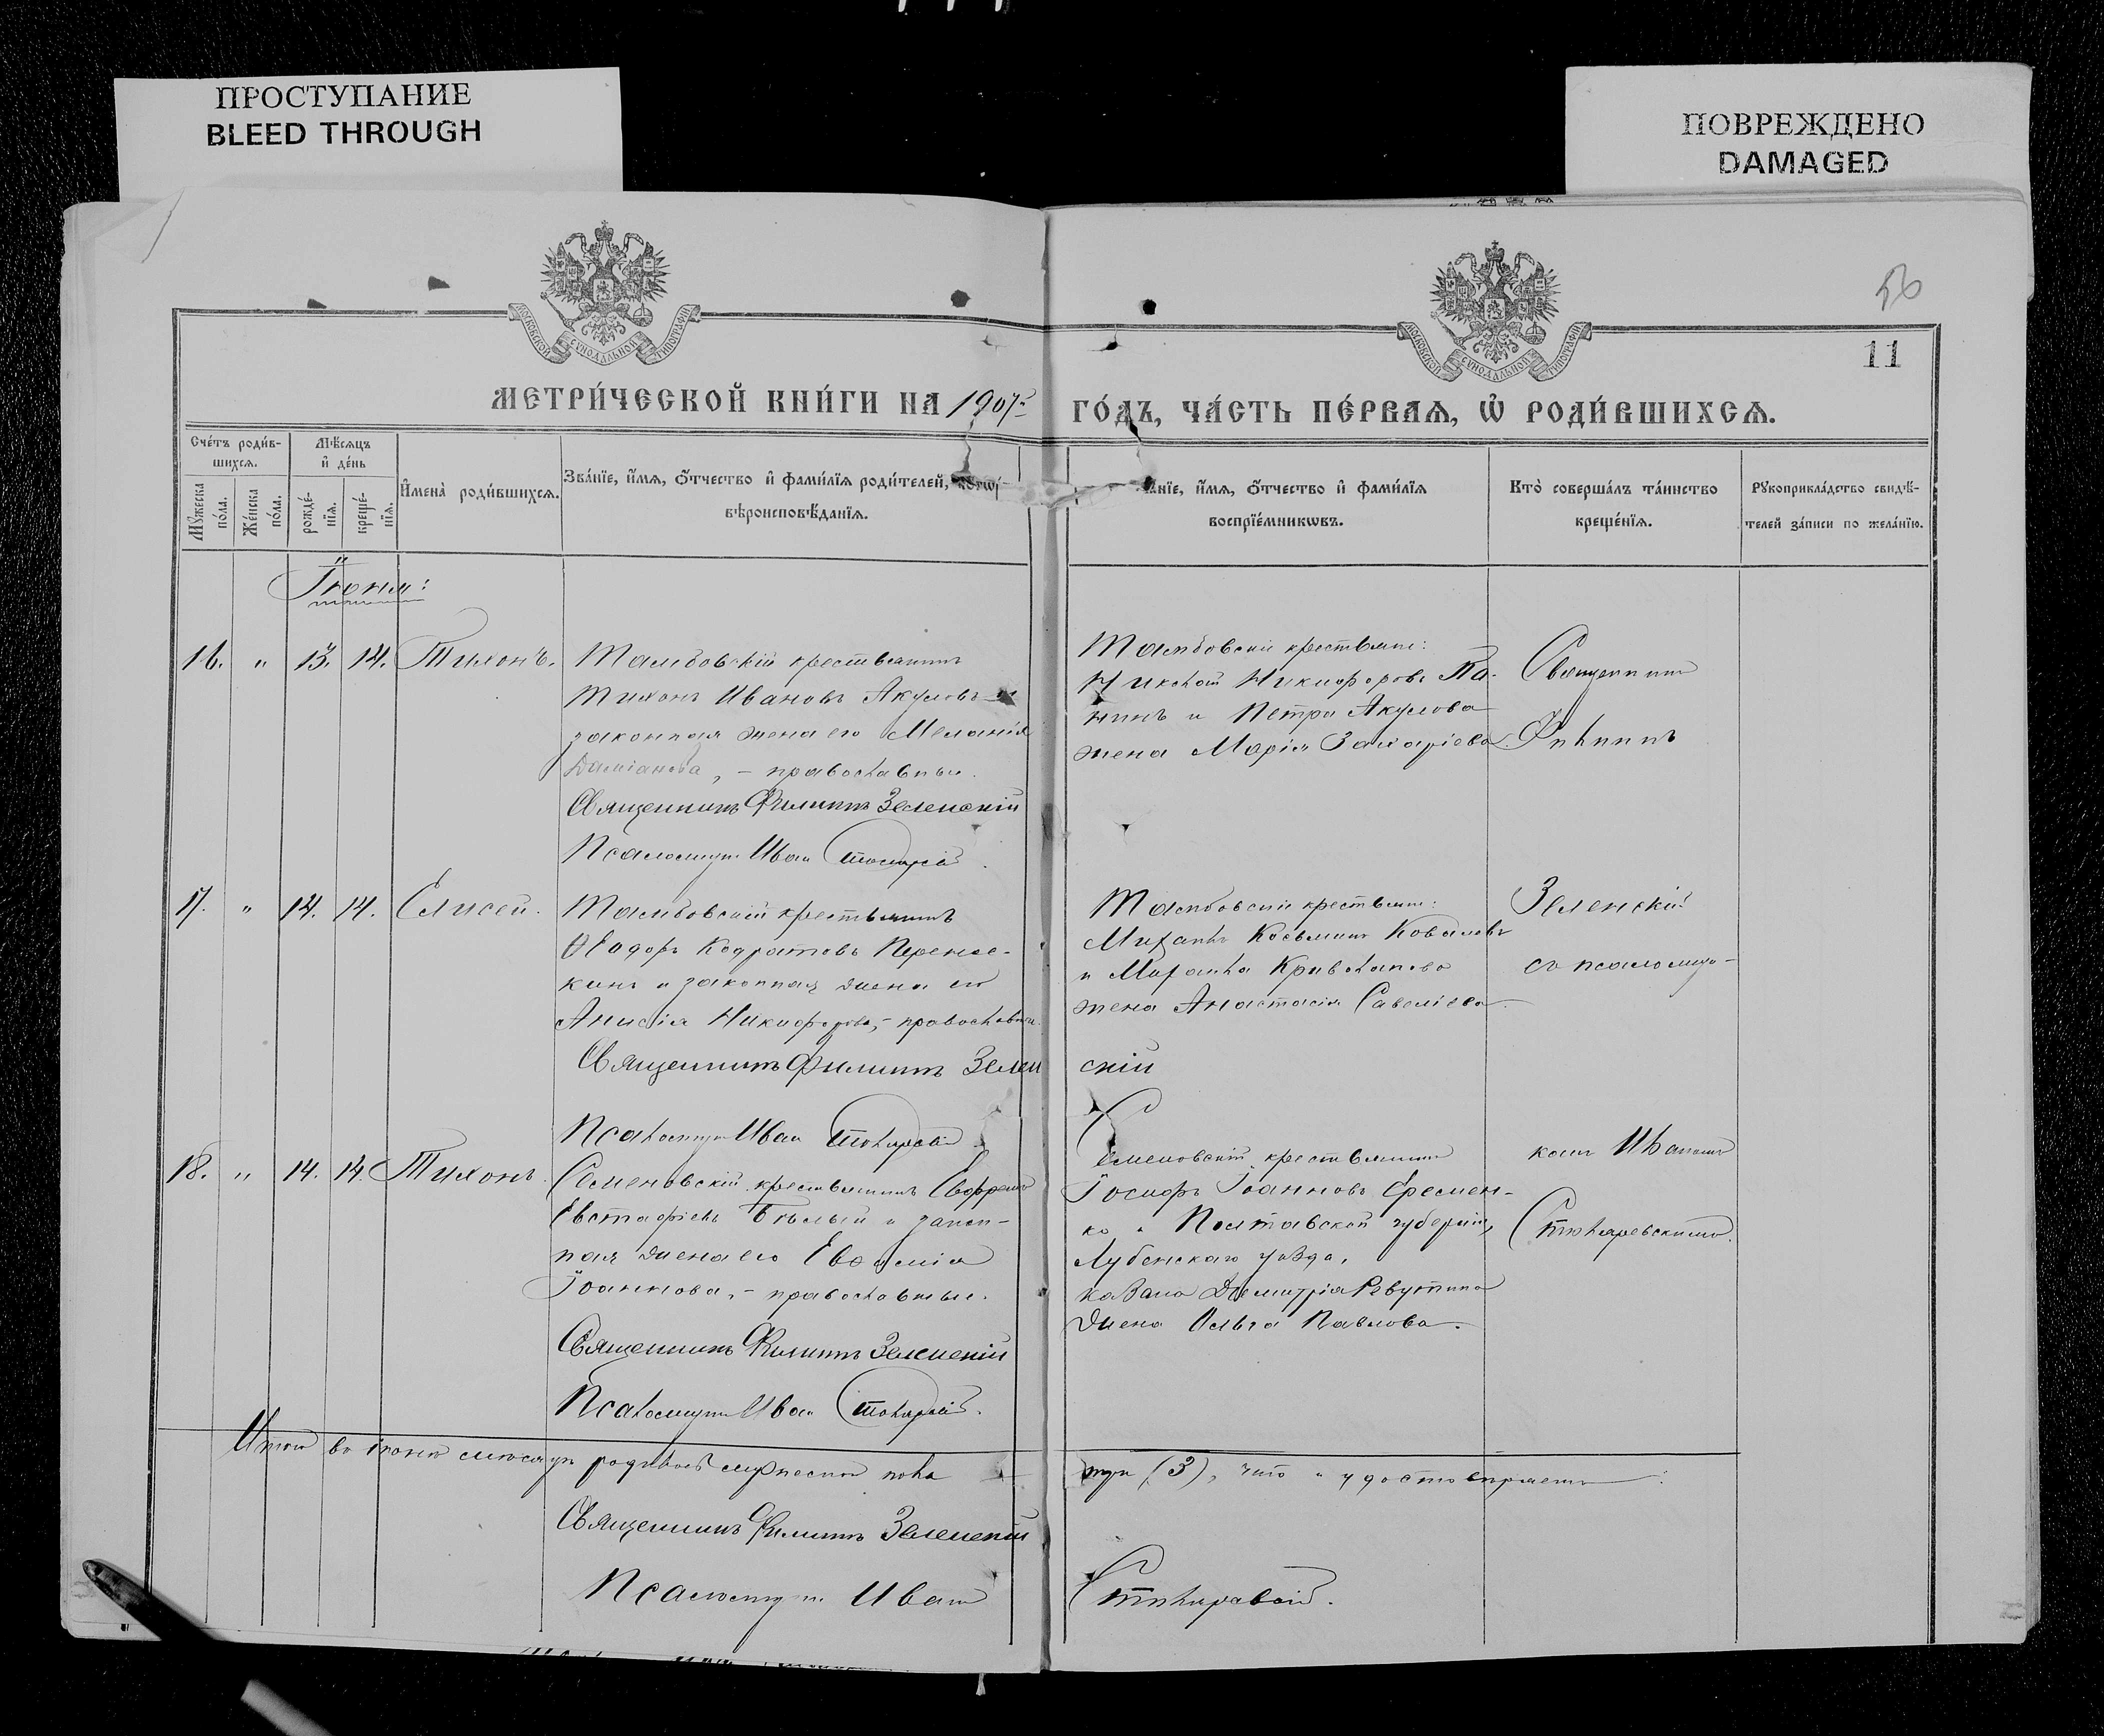 ПРОСТУПАНИЕ
BLEED THROUGH
ПОВРЕЖДЕНО
DAMAGED
56
11
МОСКОВСКОЙ СѴНОДАЛЬНОЙ ТИПОГРАФІИ
МОСКОВСКОЙ СѴНОДАЛЬНОЙ ТИПОГРАФІИ
МЕТРИ́ЧЕСКОЙ КНИ́ГИ НА 1907 г. ГО́ДЪ, ЧА́СТЬ ПЕ́РВАѦ, Ѡ҆ РОДИ́ВШИХСѦ.
Сче́тъ роди́в-
шихсѧ.
Мѣ́сѧцъ
и҆ де́нь
Мꙋ́жеска по́ла.
Же́нска по́ла.
рожде́-
нїѧ.
креще́-
нїѧ.
И҆мена̀ роди́вшихсѧ.
Зва́нїе, и҆́мѧ, ѻ҆́тчество и҆ фами́лїѧ роди́телей,
вѣроисповѣ́данїѧ.
и҆́мѧ, ѻ҆́тчество и҆ фами́лїѧ
воспрїе́мникѡвъ.
Кто̀ соверша́лъ та́инство
креще́нїѧ.
Рꙋкоприкла́дство свидѣ́-
телей за́писи по жела́нїю.
Іюня:
16. " 13. 14. Тихонъ.
Тамбовскій крестьянинъ
Тихонъ Ивановъ Акуловъ и
законная жена его Меланія
Даміанова, – православные.
Священникъ Филиппъ Зеленскій
Псаломщикъ Иван
Тамбовскіе крестьяне:
Николай Никифоровъ Па-
нинъ и Петра Акулова
жена Марія Захаріева.
Священникъ
Филиппъ
17. " 14. 14. Елисей.
Тамбовскій крестьянинъ
Ѳеодоръ Кодратовъ
кинъ и законная жена его
Анисія Никифорова, – православные.
Священникъ Филиппъ Зелен
скій
Псаломщикъ Иван
Тамбовскіе крестьяне:
Михаилъ Косьминъ Ковалевъ
и Михаила
жена Анастасія Савеліева.
Зеленскій
съ псаломщи-
18. " 14. 14. Тихонъ.
Семеновскій крестьянинъ
Евстафіевъ Бѣлый и закон-
ная жена его Евѳимія
Іоаннова, – православные.
Священникъ Филиппъ Зеленскій
Псаломщикъ Иван
Семеновскій крестьянинъ
Іосифъ Іоанновъ Еремен-
ко и Полтавской губерніи,
Лубенскаго уѣзда,
козака Димитрія Ревутина
жена Ольга Павлова.
комъ Иваномъ
Столяревскимъ.
Итого въ іюнѣ мѣсяцѣ родилось мужеска пола
три (3), что и удостовѣряемъ:
Священникъ Филиппъ Зеленскій
Псаломщикъ Иван